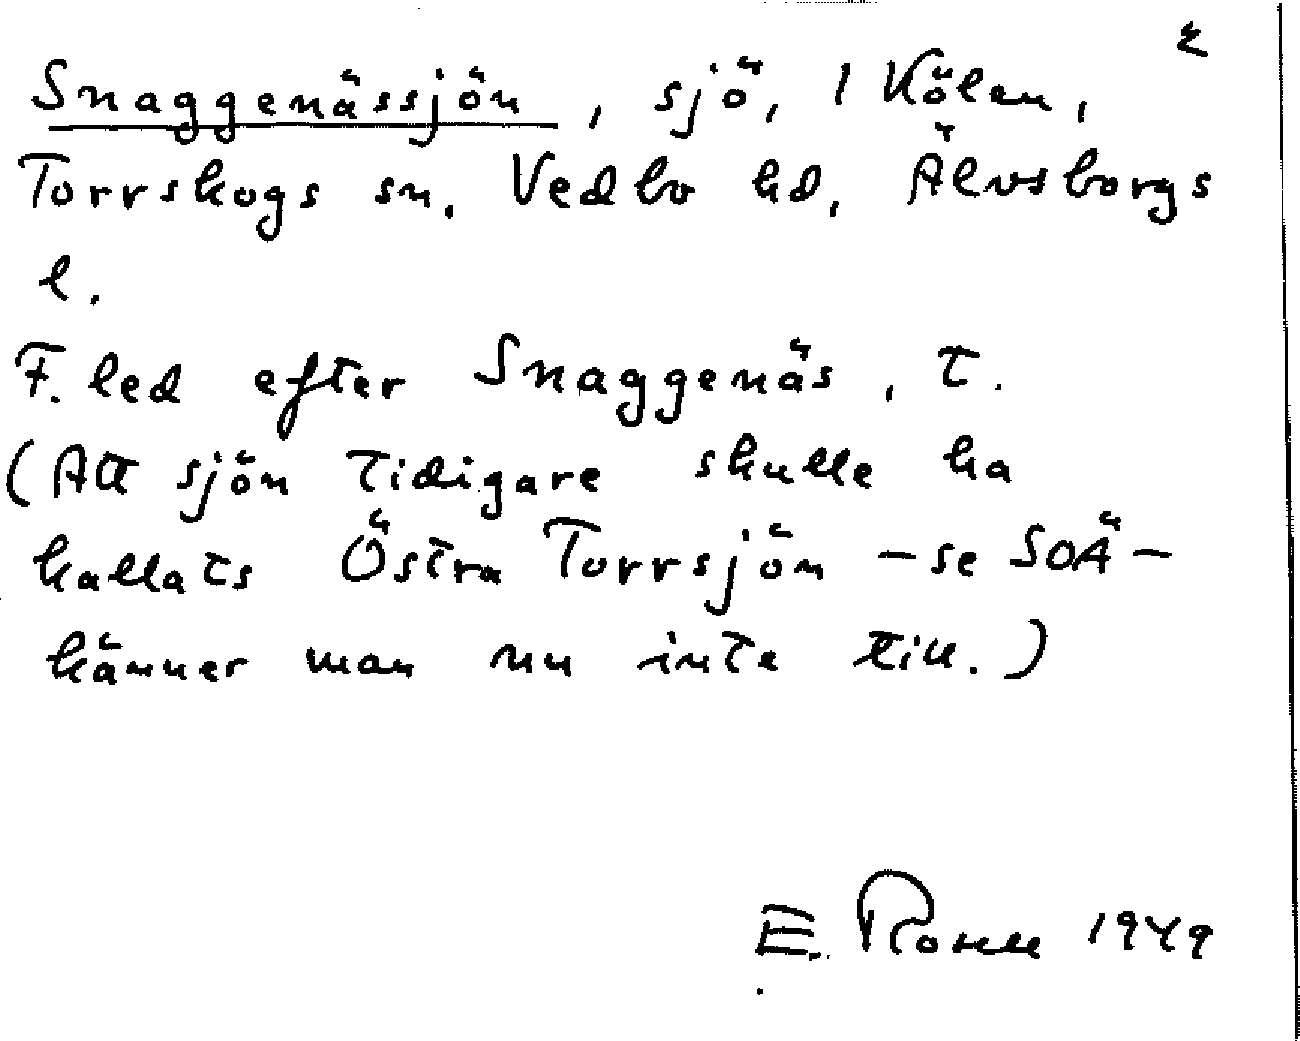 2
Snaggenässjön, sjö, I Kölen,
Torrskogs sn. Vedbo hd, Älvsborgs
l.
F. led efter Snaggenäs, t.
(Att sjön tidigare skulle ha
kallats Östra Torrsjön – se SOÄ –
känner man nu inte till.)
E. 1949